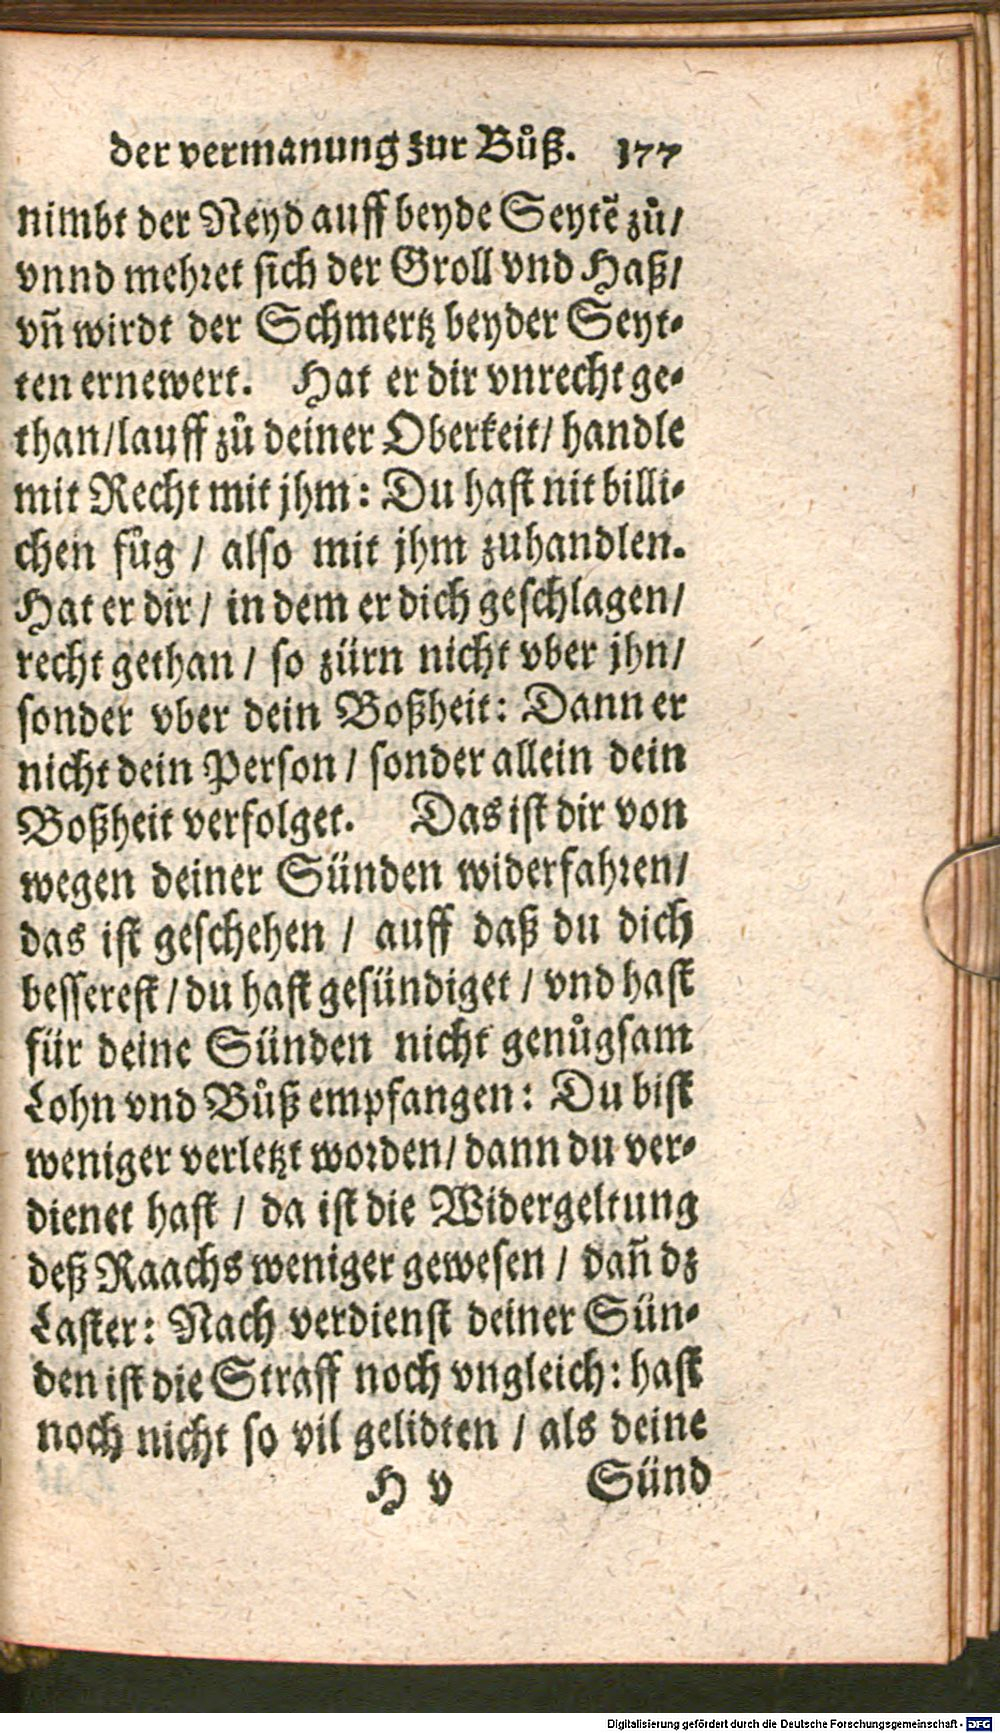 der vermanung zur Bůß. 177
nimbt der Neyd auff beyde Seytẽ zů/
vnnd mehret sich der Groll vnd Haß/
vñ wirdt der Schmertz beyder Seyt-
ten ernewert. Hat er dir vnrecht ge-
than/lauff zů deiner Oberkeit/ handle
mit Recht mit jhm: Du hast nit billi-
chen fůg / also mit jhm zuhandlen.
Hat er dir / in dem er dich geschlagen/
recht gethan / so zürn nicht vber jhn/
sonder vber dein Boßheit: Dann er
nicht dein Person / sonder allein dein
Boßheit verfolget. Das ist dir von
wegen deiner Sünden widerfahren/
das ist geschehen / auff daß du dich
besserest / du hast gesündiget / vnd hast
für deine Sünden nicht genůgsam
Lohn vnd Bůß empfangen: Du bist
weniger verletzt worden/ dann du ver-
dienet hast / da ist die Widergeltung
deß Raachs weniger gewesen / dañ dz
Laster: Nach verdienst deiner Sün-
den ist die Straff noch vngleich: hast
noch nicht so vil gelidten / als deine
H v Sünd
Digitalisierung gefördert durch die Deutsche Forschungsgemeinschaft - DFG